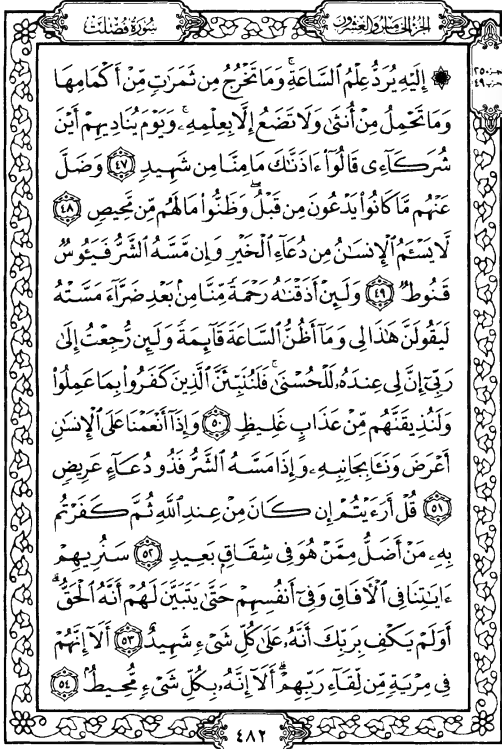 سُورَةُ فُصِّلَتْ
الجُزْءُ الخَامِسُ وَالعِشْرُونَ
۞ إِلَيْهِ يُرَدُّ عِلْمُ ٱلسَّاعَةِۚ وَمَا تَخْرُجُ مِن ثَمَرَٰتٍ مِّنْ أَكْمَامِهَا
وَمَا تَحْمِلُ مِنْ أُنثَىٰ وَلَا تَضَعُ إِلَّا بِعِلْمِهِۦۚ وَيَوْمَ يُنَادِيهِمْ أَيْنَ
شُرَكَآءِى قَالُوٓاْ ءَاذَنَّٰكَ مَا مِنَّا مِن شَهِيدٍ ٤٧ وَضَلَّ
عَنْهُم مَّا كَانُواْ يَدْعُونَ مِن قَبْلُۖ وَظَنُّواْ مَا لَهُم مِّن مَّحِيصٍ ٤٨
لَّا يَسْـَٔمُ ٱلْإِنسَٰنُ مِن دُعَآءِ ٱلْخَيْرِ وَإِن مَّسَّهُ ٱلشَّرُّ فَيَـُٔوسٌ
قَنُوطٌ ٤٩ وَلَئِنْ أَذَقْنَٰهُ رَحْمَةً مِّنَّا مِنۢ بَعْدِ ضَرَّآءَ مَسَّتْهُ
لَيَقُولَنَّ هَٰذَا لِى وَمَآ أَظُنُّ ٱلسَّاعَةَ قَآئِمَةً وَلَئِن رُّجِعْتُ إِلَىٰ
رَبِّىٓ إِنَّ لِى عِندَهُۥ لَلْحُسْنَىٰۚ فَلَنُنَبِّئَنَّ ٱلَّذِينَ كَفَرُواْ بِمَا عَمِلُواْ
وَلَنُذِيقَنَّهُم مِّنْ عَذَابٍ غَلِيظٍ ٥٠ وَإِذَآ أَنْعَمْنَا عَلَى ٱلْإِنسَٰنِ
أَعْرَضَ وَنَـَٔا بِجَانِبِهِۦ وَإِذَا مَسَّهُ ٱلشَّرُّ فَذُو دُعَآءٍ عَرِيضٍ
٥١ قُلْ أَرَءَيْتُمْ إِن كَانَ مِنْ عِندِ ٱللَّهِ ثُمَّ كَفَرْتُم
بِهِۦ مَنْ أَضَلُّ مِمَّنْ هُوَ فِى شِقَاقٍۭ بَعِيدٍ ٥٢ سَنُرِيهِمْ
ءَايَٰتِنَا فِى ٱلْءَافَاقِ وَفِىٓ أَنفُسِهِمْ حَتَّىٰ يَتَبَيَّنَ لَهُمْ أَنَّهُ ٱلْحَقُّۗ
أَوَلَمْ يَكْفِ بِرَبِّكَ أَنَّهُۥ عَلَىٰ كُلِّ شَىْءٍ شَهِيدٌ ٥٣ أَلَآ إِنَّهُمْ
فِى مِرْيَةٍ مِّن لِّقَآءِ رَبِّهِمْۗ أَلَآ إِنَّهُۥ بِكُلِّ شَىْءٍ مُّحِيطٌۢ ٥٤
٤٨٢